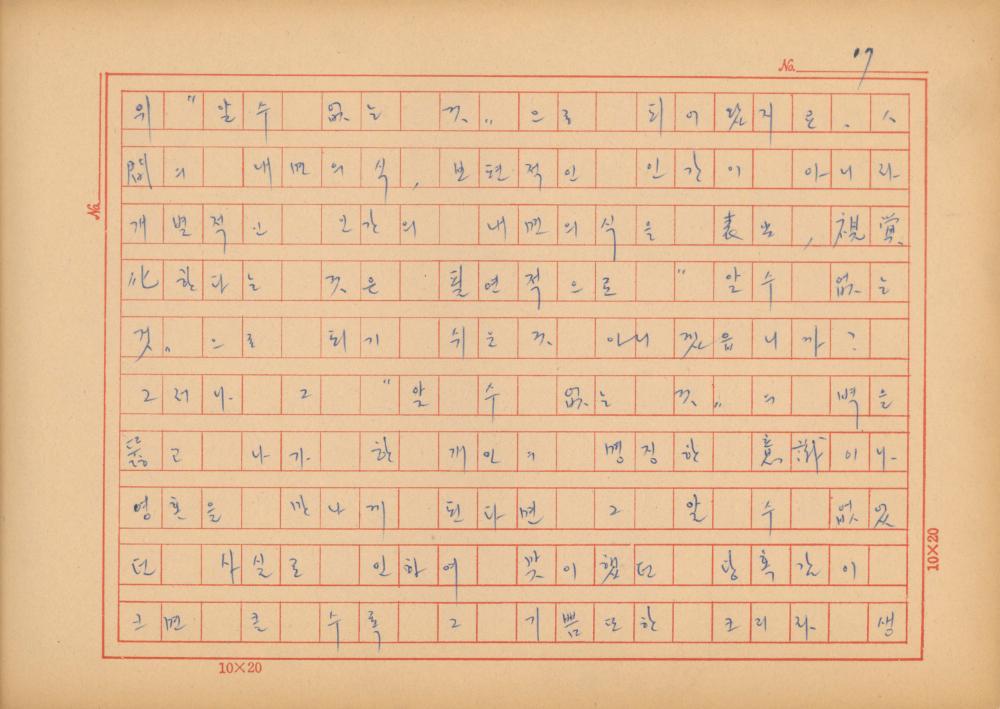 No. 17
위 "알수 없는 것„으로 되어왔지요. 人
間의 내면의식, 보편적인 인간이 아니라
개별적인 인간의 내면의식을 表出, 視覚
化한다는 것은 필연적으로 "알수 없는
것„으로 되기 쉬운것 아니겠읍니까?
그러나 그 "알 수 없는 것„의 벽을
뚫고 나가 한 개인의 명징한 意識이나
영혼을 만나게 된다면 그 알 수 없었
던 사실로 인하여 맞이했던 당혹감이
크면 클 수록 그 기쁨또한 크리라 생
No.
10×20
10×20